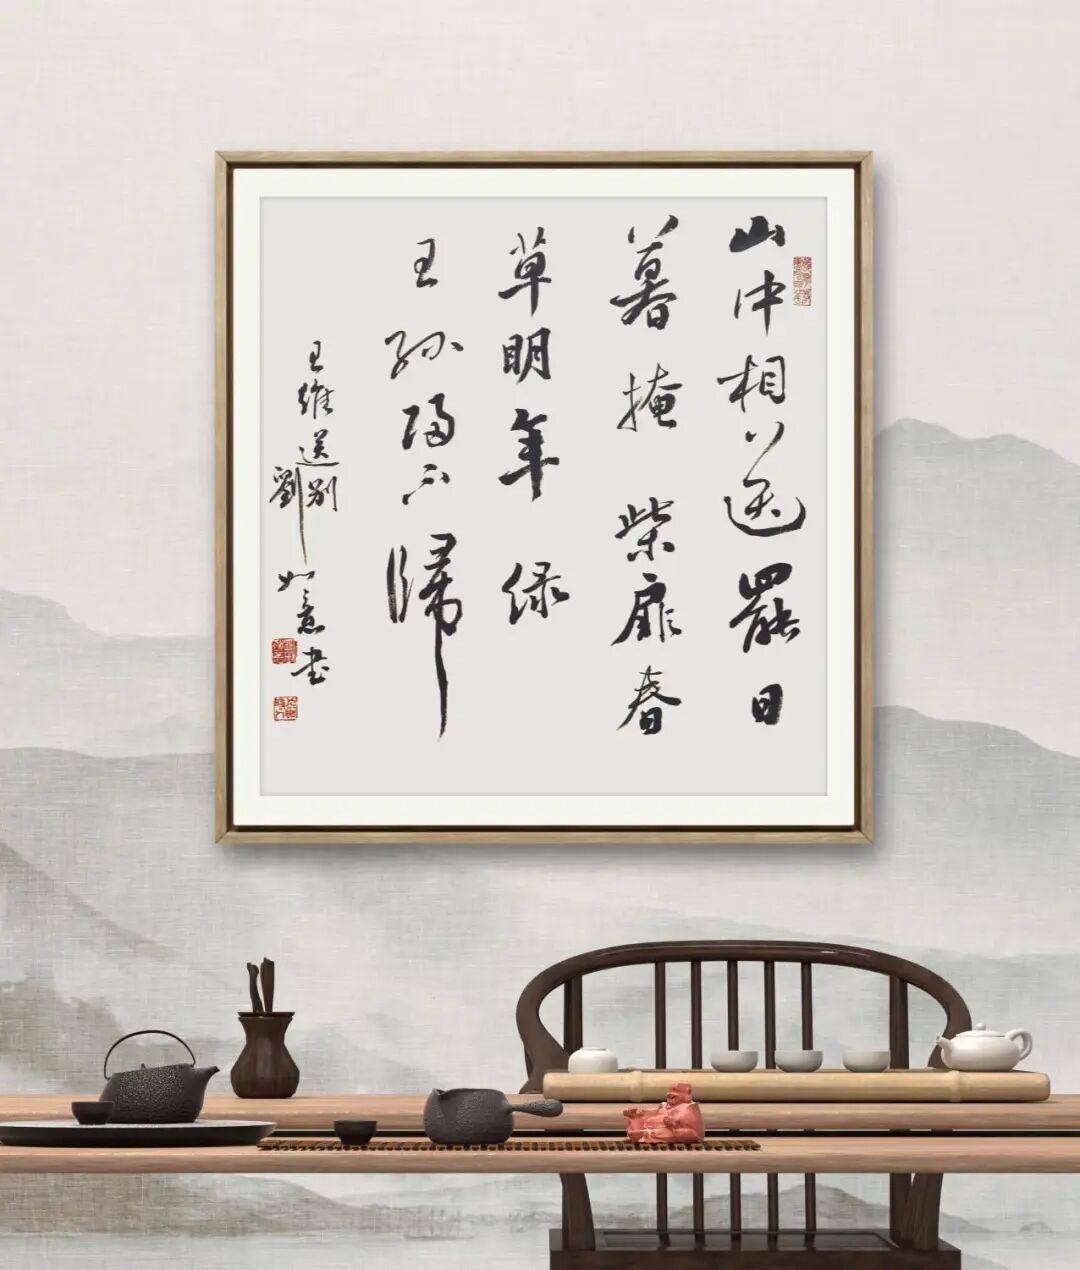 山中相送罷日
暮掩柴扉春
草明年绿
王孙归不歸
王維送别
劉如意书